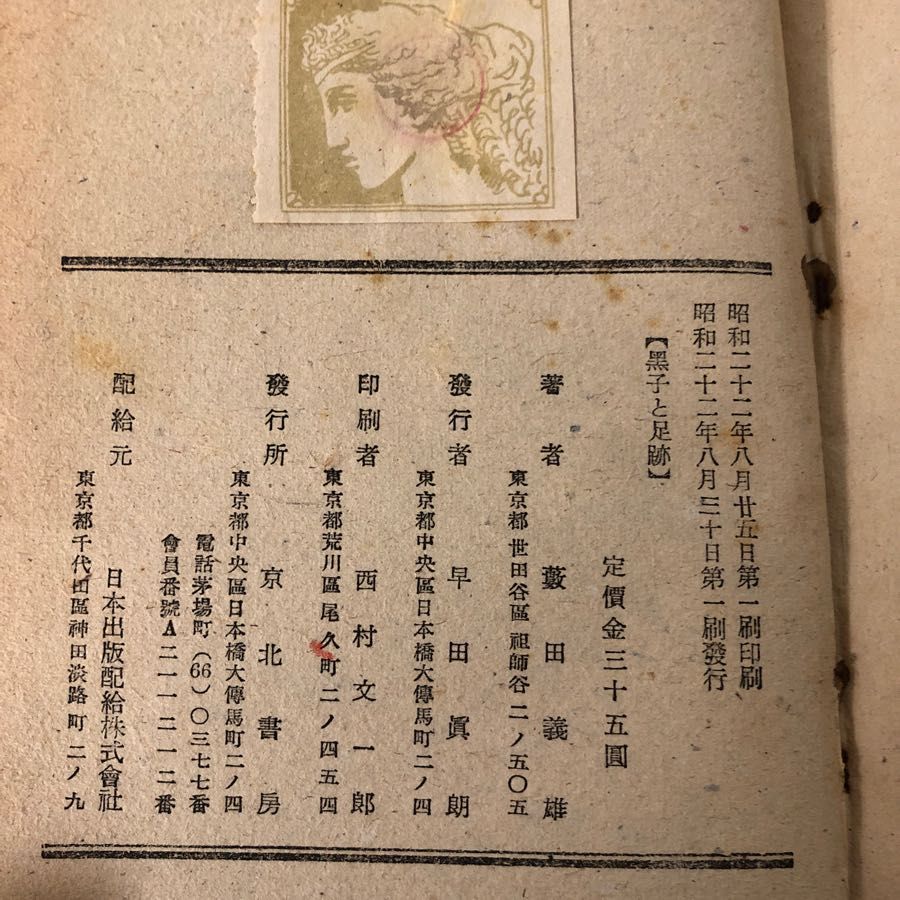 昭和二十二年八月廿五日第一刷印刷
昭和二十二年八月三十日第一刷發行
【黑子と足跡】
定價金三十五圓
著者 藪田義雄
東京都世田谷區祖師谷二ノ五〇五
發行者 早田眞朗
東京都中央區日本橋大傳馬町二ノ四
印刷者 西村文一郎
東京都荒川區尾久町二ノ四五四
發行所 京北書房
東京都中央區日本橋大傳馬町二ノ四
電話茅場町(66)〇三七七番
會員番號A二一一二一二番
配給元 日本出版配給株式會社
東京都千代田區神田淡路町二ノ九